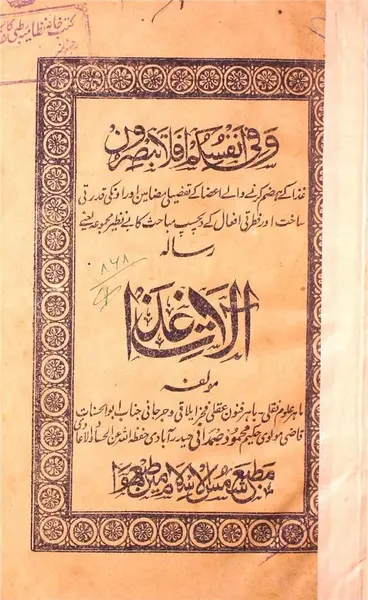 کتب خانہ نظامیہ طبی
وفی انفسکم افلا تبصرون
غذا کے ہضم کرنے والے اعضا کے تفصیلی مضامین اور اونکی قدرتی
ساخت اور فطرتی افعال کے دلچسپ مباحث کا بے نظیر مجموعہ یعنے
رسالہ
۸۶۸
الات غذا
مولفہ
ماہر علوم نقلی۔ ماہر فنون عقلی فخر ایلاقی و جرجانی جناب ابو الحسنات
قاضی مولوی حکیم محمود صمدانی حیدرآبادی حفظہ اللہ عن الحساد والاعادی
مطبع شمس الاسلام میں طبع ہوا